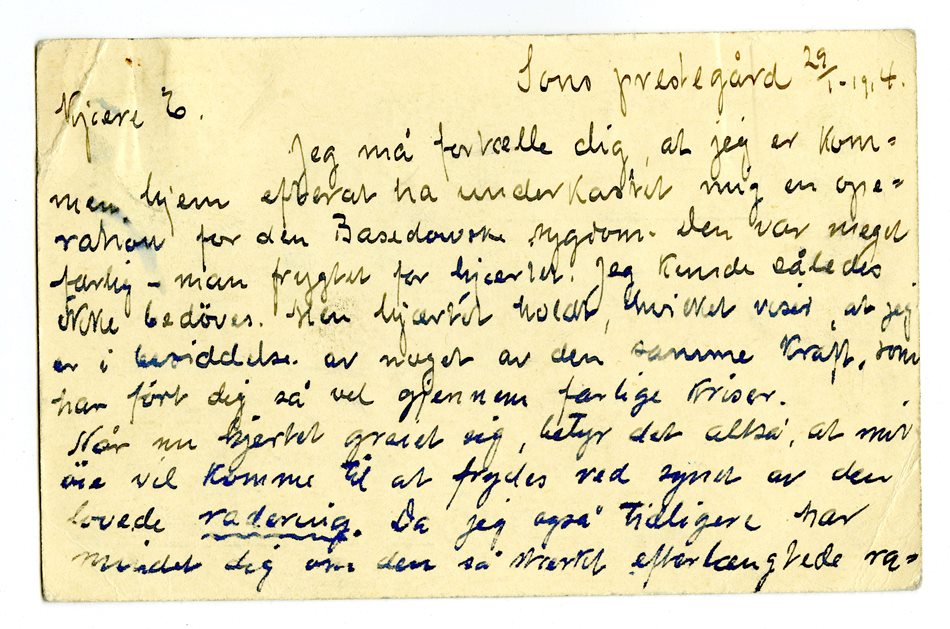 Sons prestegård 29/1-1914.
Kjære E.
Jeg må fortælle dig, at jeg er kom-
men hjem efterat ha underkastet mig en ope-
ration for den Basedowske sygdom. Den var meget
farlig – man frygtet for hjærtet. Jeg kunde således
ikke bedöves. Men hjærtet holdt, hvilket viser, at jeg
er i besiddelse av noget av den samme kraft, som
har fört dig så vel gjennem farlige kriser.
Når nu hjertet greiet sig, betyr det altså, at mit
öie vil komme til at frydes ved synet av den
lovede radering. Da jeg også tidligere har
mindet dig om den så stærkt efterlængtede ra-